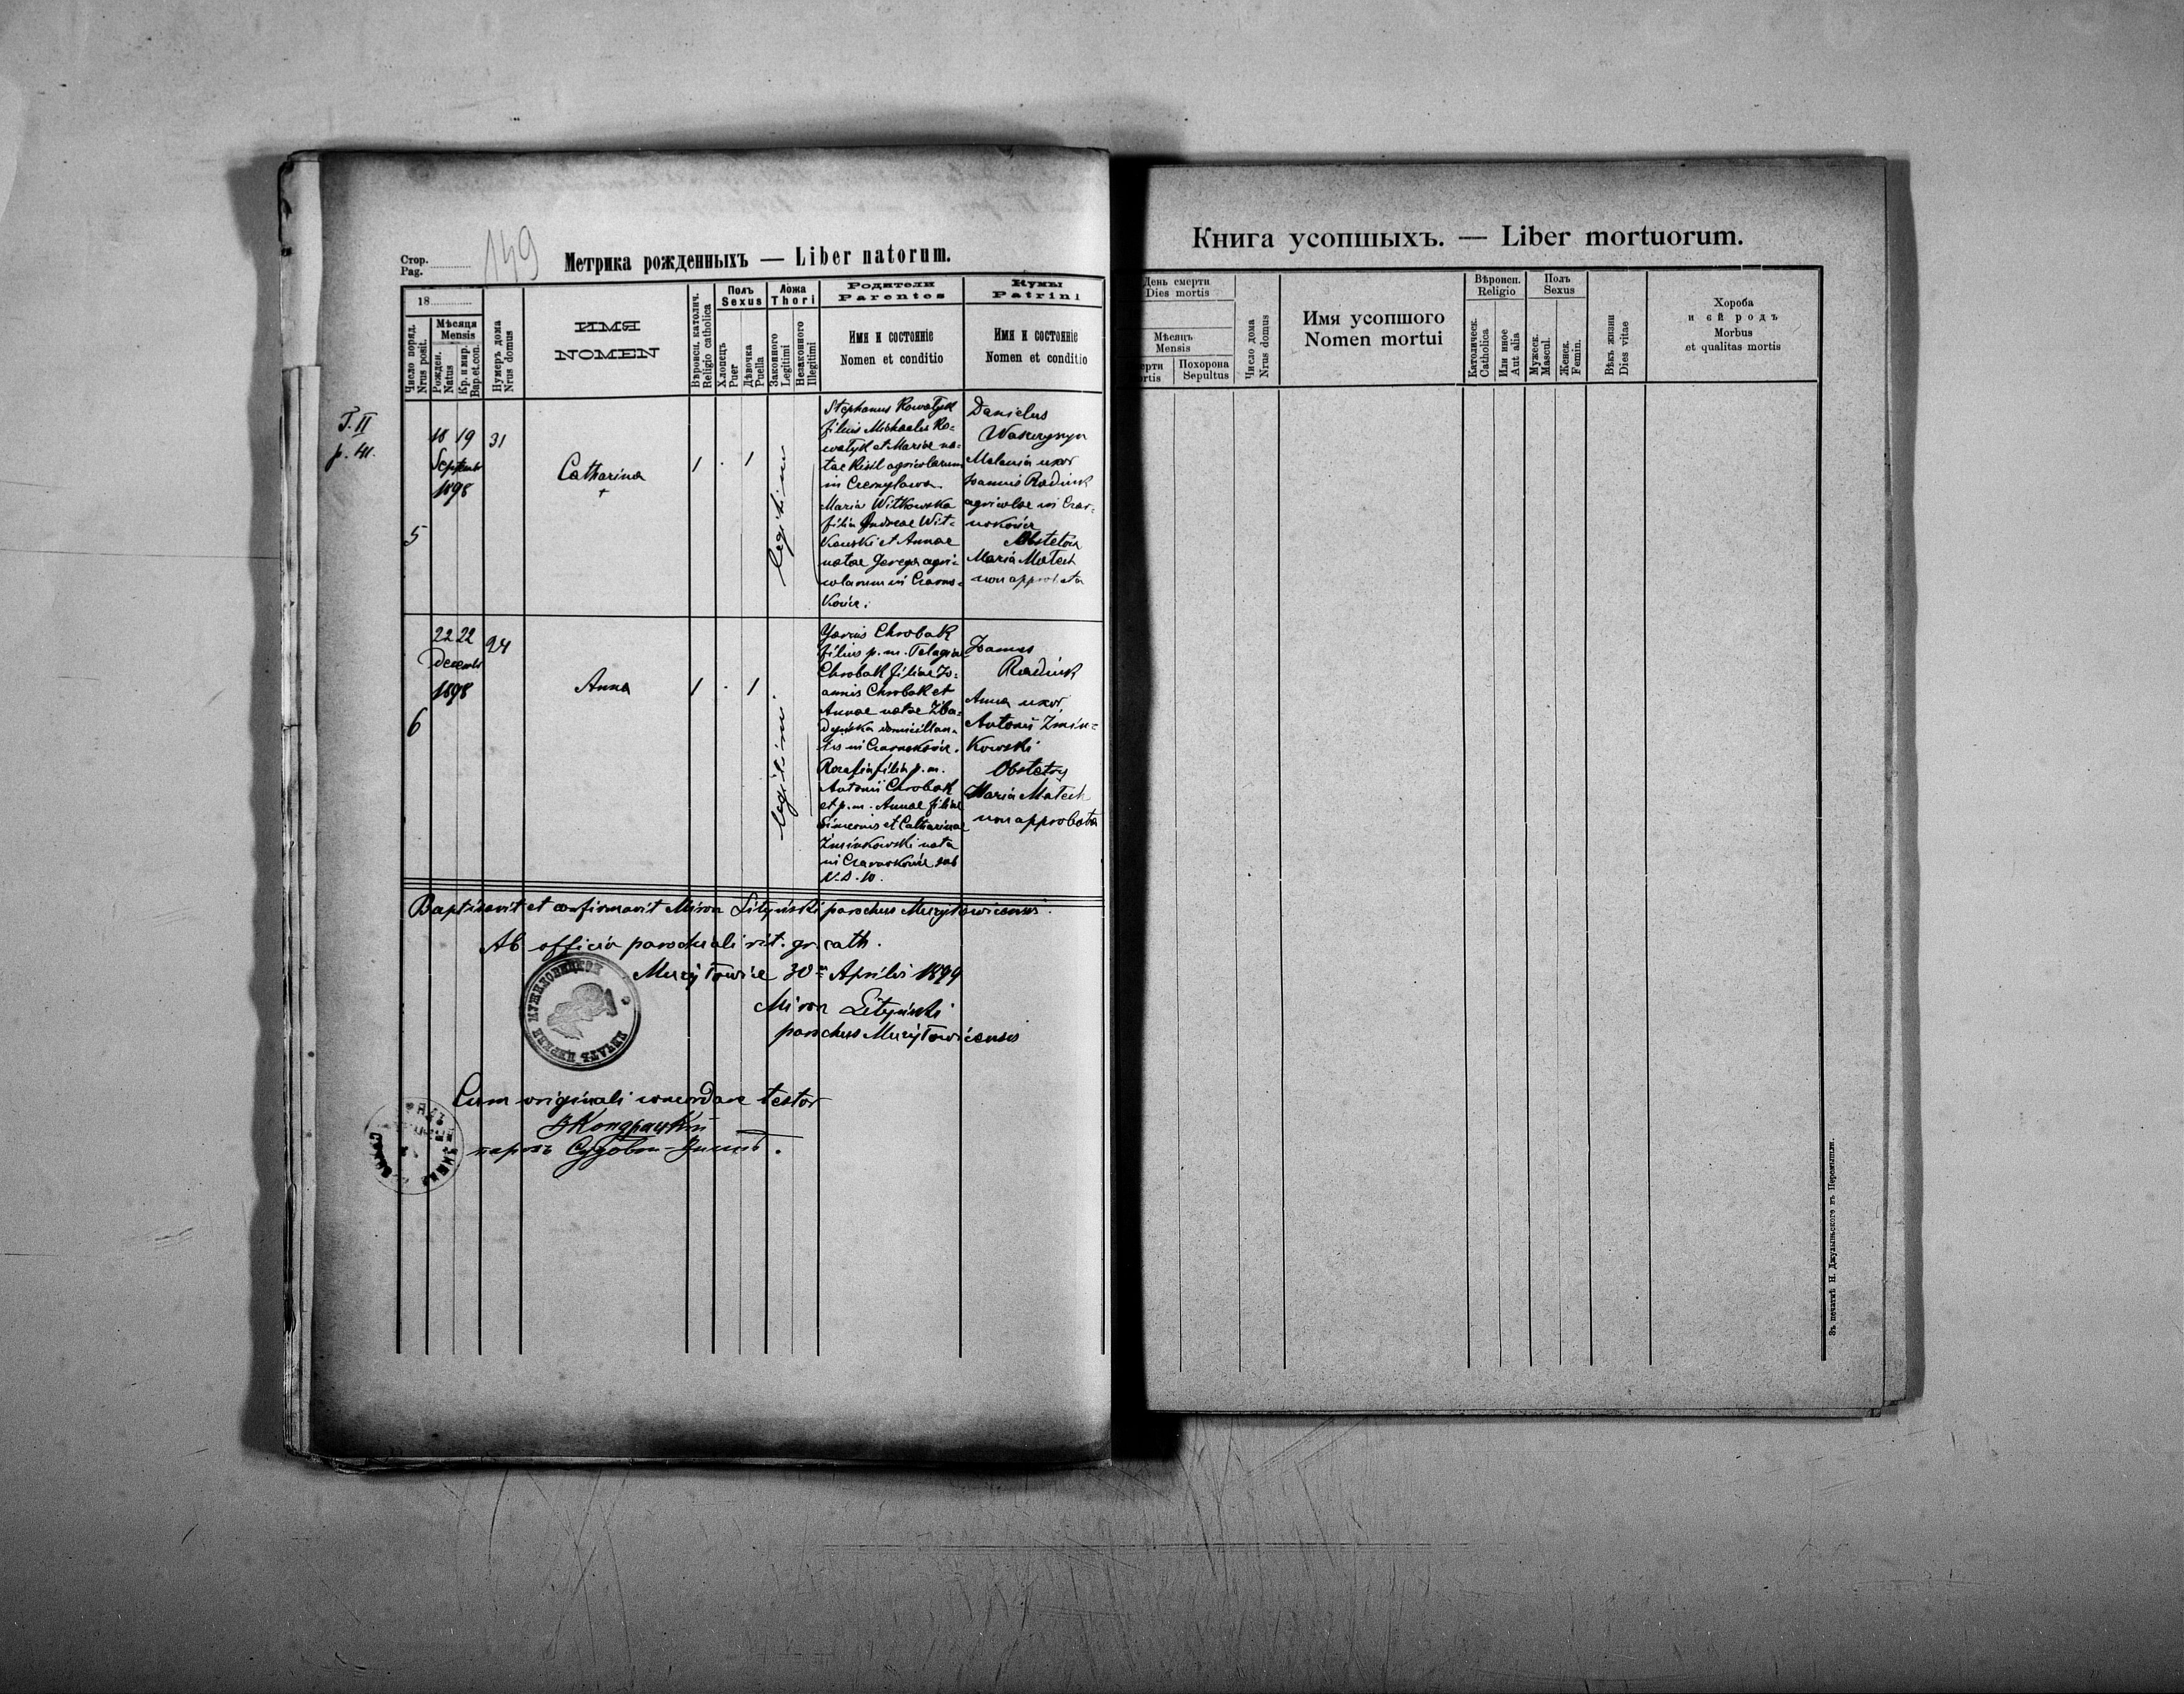 149
Стор.
Pag.
Метрика рожденныхъ — Liber natorum.
18
Число поряд.
Nrus posit.
Мѣсяця
Mensis
Рожден.
Natus
Кр. и мѵр.
Bap. et con.
Нумеръ дома
Nrus domus
ИМЯ
NOMEN
Вѣроисп. католич.
Religio catholica
Полъ
Sexus
Хлопецъ
Puer
Дѣвочка
Puella
Ложа
Thori
Законного
Legitimi
Незаконного
Illegitimi
Родители
Parentes
Имя и состояніе
Nomen et conditio
Кумы
Patrini
Имя и состояніе
Nomen et conditio
T. II
p. 41.
5
18 19
Septemb
1898
31
Catharina
+
1 . 1
legitimi
Stephanus Kowalyk
filius Michaelis Ko=
walyk et Mariae na=
tae agricolarum
in
Maria Witkowska
filia Andreae Wit=
kowski et Annae
natae agri=
colarum in Czarno=
końce.
Danielus
Melania uxor
Joannis Radiuk
agricolae in Czar=
nokońce
Obstetrix
Maria Matech
non approbata
6
22 22
Decemb
1898
24
Anna
1 . 1
legitimi
Chrobak
filius p. m. Pelagiae
Chrobak filiae Jo=
annis Chrobak et
Annae natae
domicilian=
tis in Czarnokońce.
filia p. m.
Antonii Chrobak
et p. m. Annae filiae
Simeonis et Catharinae
Zminkowski nata
in Czarnokońce sub
N. D. 10.
Joannes
Radiuk
Anna uxor
Antonii Zmin=
kowski
Obstetrix
Maria Matech
non approbata
Baptisavit et confirmavit Miron Lityński parochus
Ab officio parochiali rit. gr. cath.
30 Aprilis 1899
Miron Lityński
parochus
ПЕЧАТЬ ЦЕРКВИ
Cum originali concordare testor
Книга усопшыхъ. — Liber mortuorum.
День смерти
Dies mortis
Мѣсяцъ
Mensis
ерти
ortis
Похорона
Sepultus
Число дома
Nrus domus
Имя усопшого
Nomen mortui
Вѣроисп.
Religio
Католическ.
Catholica
Или иное
Aut alia
Полъ
Sexus
Мужеск.
Mascul.
Женск.
Femin.
Вѣкъ жизни
Dies vitae
Хороба
и єѣ родъ
Morbus
et qualitas mortis
Зъ печатнѣ Н. Джулыньского въ Перемышли.